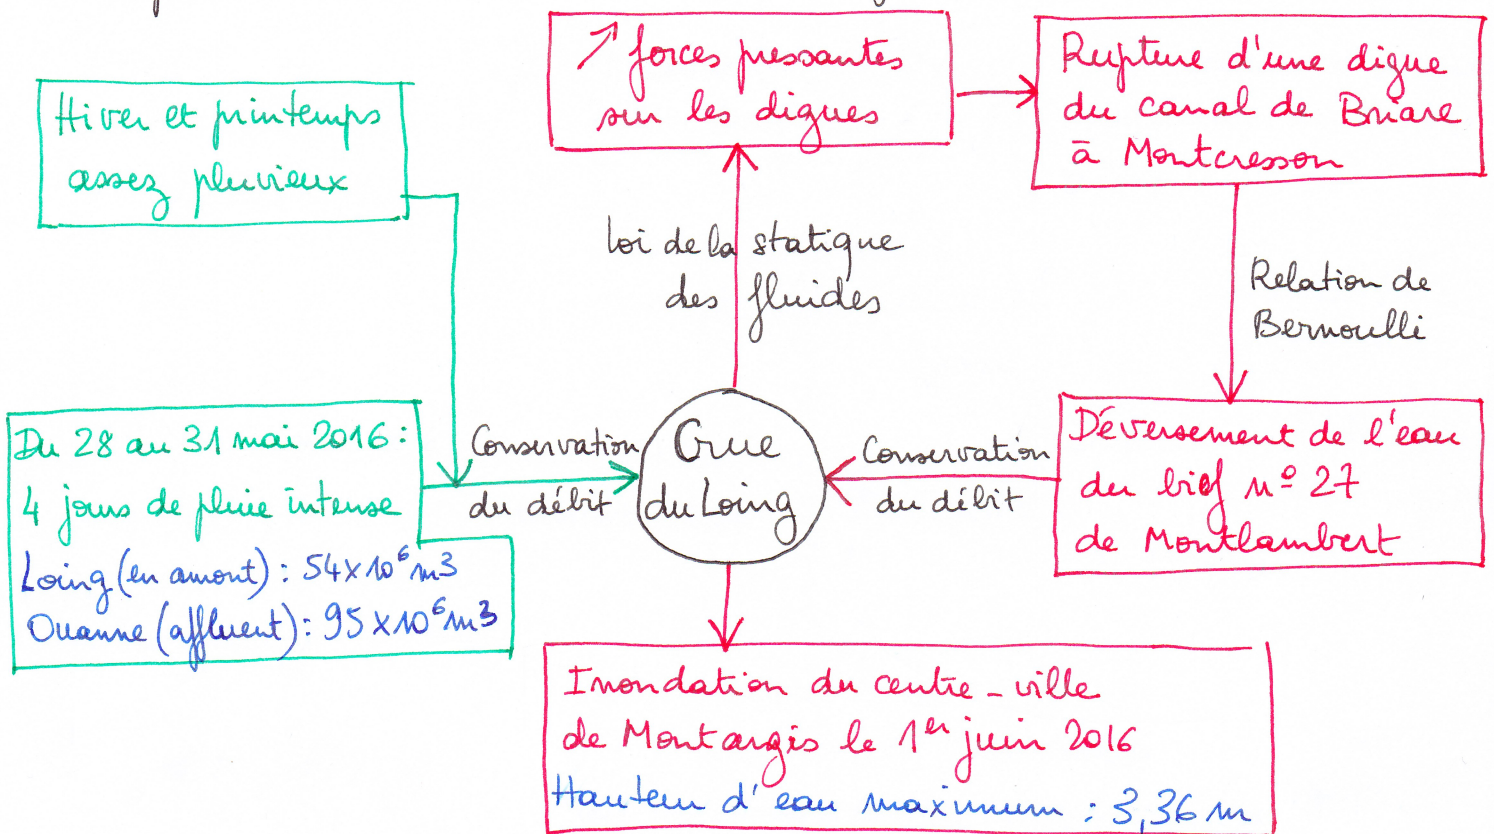 ↗ forces pressantes
sur les digues
Rupture d'une digue
du canal de Briare
à Montcresson
Hiver et printemps
assez pluvieux
loi de la statique
des fluides
Relation de
Bernoulli
Du 28 au 31 mai 2016 :
4 jours de pluie intense
Loing (en amont) : 54×10⁶ m³
Ouanne (affluent) : 95×10⁶ m³
Conservation
du débit
Crue
du Loing
Conservation
du débit
Déversement de l'eau
du bief nº 27
de Montlambert
Inondation du centre-ville
de Montargis le 1er juin 2016
Hauteur d'eau maximum : 3,36 m